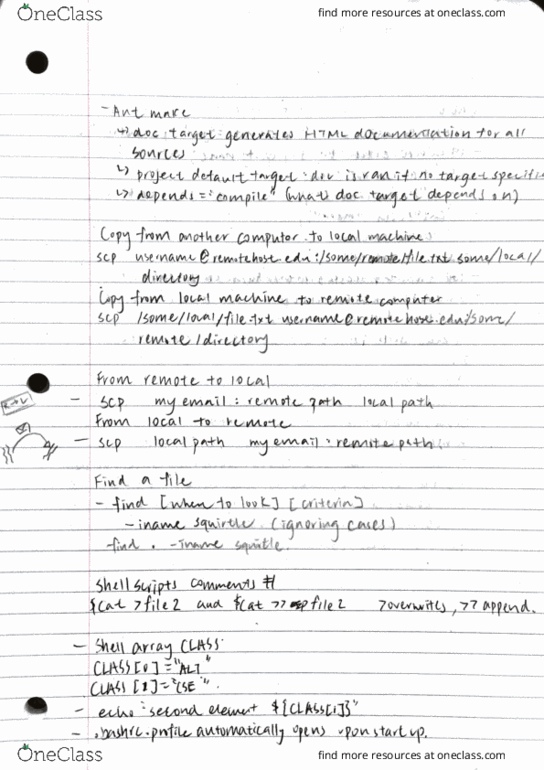 OneClass
find more resources at oneclass.com
- Ant make
↳ doc target generates HTML documentation for all
sources
↳ project default target: doc is ran if no target specifi
↳ depends = "compile" (what doc target depends on)
Copy from another computer to local machine:
scp username@remotehost.edu:/some/remote/file.txt some/local/
directory
Copy from local machine to remote computer
scp /some/local/file.txt username@remotehost.edu:/some/
remote/directory
From remote to local
- scp my email : remote path local path
From local to remote
- scp local path my email : remote path
Find a file
- find [when to look] [criteria]
- iname squirtle (ignoring cases)
-find . -iname squitle
Shell scripts comments #
$cat >file2 and $cat >> file2 >overwrites, >> append.
- Shell array CLASS
CLASS[0]="ALI"
CLASS[1]="CSE".
- echo "second element ${CLASS[1]}"
- .bashrc.profile automatically opens upon startup.
OneClass
find more resources at oneclass.com